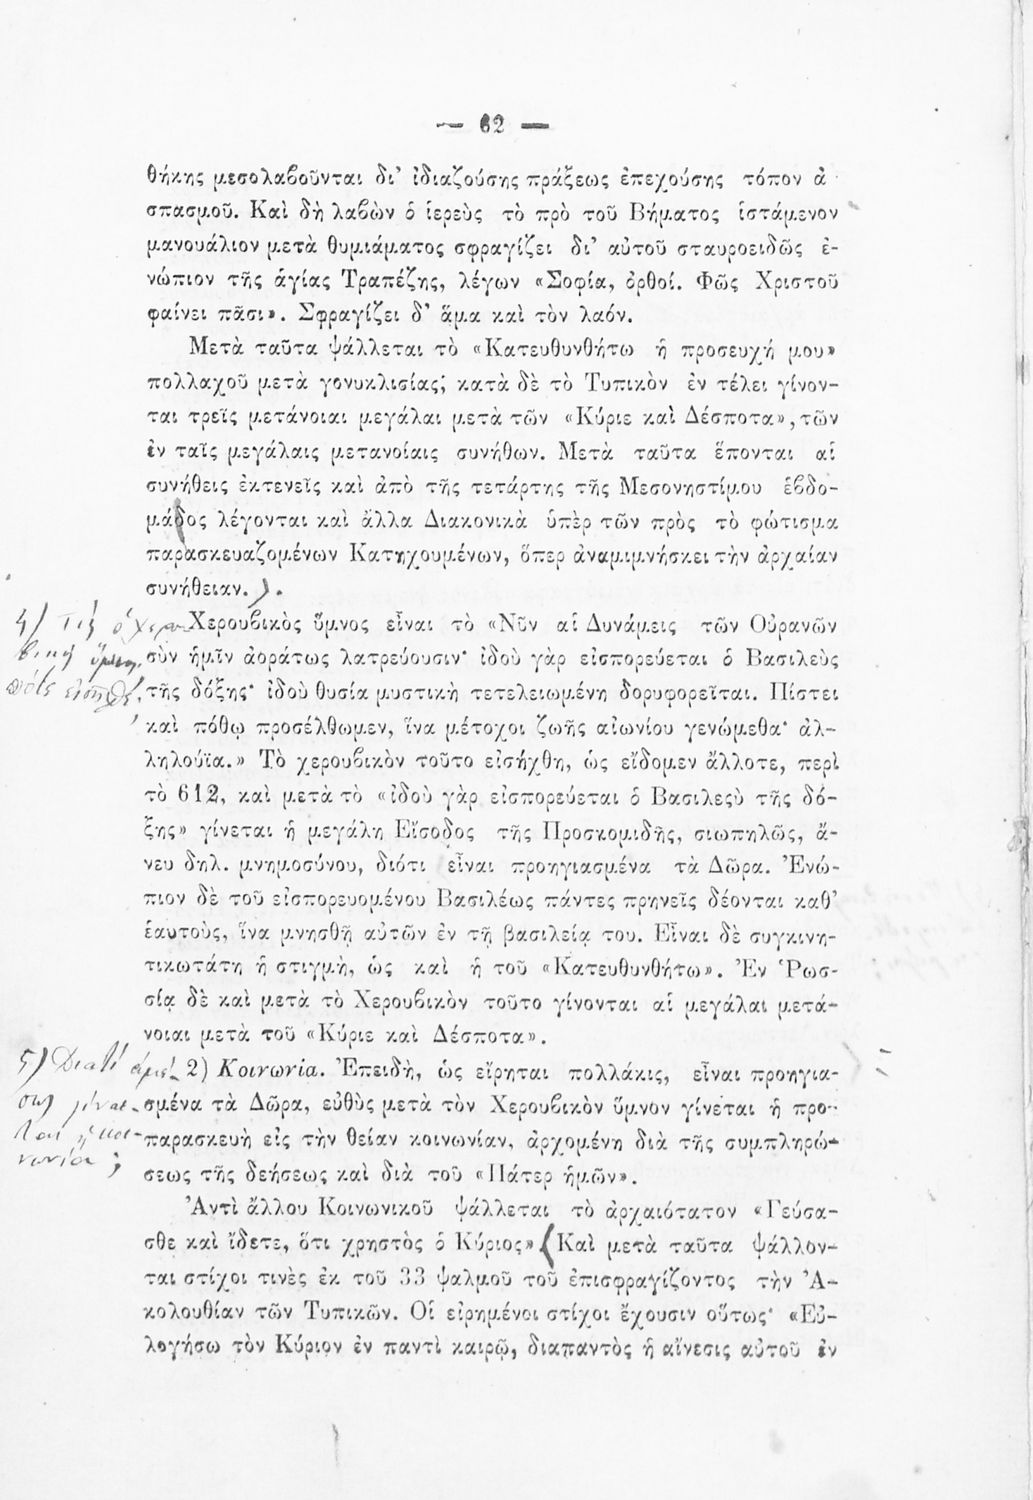 — 62 —
θήκης μεσολαβοῦνται δι' ἰδιαζούσης πράξεως ἐπεχούσης τόπον ἀ
σπασμοῦ. Καὶ δὴ λαβὼν ὁ ἱερεὺς τὸ πρὸ τοῦ Βήματος ἱστάμενον
μανουάλιον μετὰ θυμιάματος σφραγίζει δι' αὐτοῦ σταυροειδῶς ἐ-
νώπιον τῆς ἁγίας Τραπέζης, λέγων «Σοφία, ὀρθοί. Φῶς Χριστοῦ
φαίνει πᾶσι». Σφραγίζει δ' ἅμα καὶ τὸν λαόν.
Μετὰ ταῦτα ψάλλεται τὸ «Κατευθυνθήτω ἡ προσευχή μου»
πολλαχοῦ μετὰ γονυκλισίας; κατὰ δὲ τὸ Τυπικὸν ἐν τέλει γίνον-
ται τρεῖς μετάνοιαι μεγάλαι μετὰ τῶν «Κύριε καὶ Δέσποτα», τῶν
ἐν ταῖς μεγάλαις μετανοίαις συνήθων. Μετὰ ταῦτα ἕπονται αἱ
συνήθεις ἐκτενεῖς καὶ ἀπὸ τῆς τετάρτης τῆς Μεσονηστίμου ἑβδο-
μάδος λέγονται καὶ ἄλλα Διακονικὰ ὑπὲρ τῶν πρὸς τὸ φώτισμα
παρασκευαζομένων Κατηχουμένων, ὅπερ ἀναμιμνήσκει τὴν ἀρχαίαν
συνήθειαν.).
4) Τίς ὁ χερου Χερουβικὸς ὕμνος εἶναι τὸ «Νῦν αἱ Δυνάμεις τῶν Οὐρανῶν
βικὸς ὕμνος, σὺν ἡμῖν ἀοράτως λατρεύουσιν· ἰδοὺ γὰρ εἰσπορεύεται ὁ Βασιλεὺς
πότε τῆς δόξης· ἰδοὺ θυσία μυστικὴ τετελειωμένη δορυφορεῖται. Πίστει
καὶ πόθῳ προσέλθωμεν, ἵνα μέτοχοι ζωῆς αἰωνίου γενώμεθα· ἀλ-
ληλούϊα.» Τὸ χερουβικὸν τοῦτο εἰσήχθη, ὡς εἴδομεν ἄλλοτε, περὶ
τὸ 612, καὶ μετὰ τὸ «ἰδοὺ γὰρ εἰσπορεύεται ὁ Βασιλεςὺ τῆς δό-
ξης» γίνεται ἡ μεγάλη Εἴσοδος τῆς Προσκομιδῆς, σιωπηλῶς, ἄ-
νευ δηλ. μνημοσύνου, διότι εἶναι προηγιασμένα τὰ Δῶρα. Ἐνώ-
πιον δὲ τοῦ εἰσπορευομένου Βασιλέως πάντες πρηνεῖς δέονται καθ'
ἑαυτοὺς, ἵνα μνησθῇ αὐτῶν ἐν τῇ βασιλείᾳ του. Εἶναι δὲ συγκινη-
τικωτάτη ἡ στιγμὴ, ὡς καὶ ἡ τοῦ «Κατευθυνθήτω». Ἐν Ῥωσ-
σίᾳ δὲ καὶ μετὰ τὸ Χερουβικὸν τοῦτο γίνονται αἱ μεγάλαι μετά-
νοιαι μετὰ τοῦ «Κύριε καὶ Δέσποτα».
5) Διατί ἀμέ- 2) Κοινωνία. Ἐπειδὴ, ὡς εἴρηται πολλάκις, εἶναι προηγια-
σως γίνε- σμένα τὰ Δῶρα, εὐθὺς μετὰ τὸν Χερουβικὸν ὕμνον γίνεται ἡ προ-
ται ἡ κοι- παρασκευὴ εἰς τὴν θείαν κοινωνίαν, ἀρχομένη διὰ τῆς συμπληρώ-
νωνία; σεως τῆς δεήσεως καὶ διὰ τοῦ «Πάτερ ἡμῶν».
Ἀντὶ ἄλλου Κοινωνικοῦ ψάλλεται τὸ ἀρχαιότατον «Γεύσα-
σθε καὶ ἴδετε, ὅτι χρηστὸς ὁ Κύριος».(Καὶ μετὰ ταῦτα ψάλλον-
ται στίχοι τινὲς ἐκ τοῦ 33 ψαλμοῦ τοῦ ἐπισφραγίζοντος τὴν Ἀ-
κολουθίαν τῶν Τυπικῶν. Οἱ εἰρημένοι στίχοι ἔχουσιν οὕτως· «Εὐ-
λογήσω τὸν Κύριον ἐν παντὶ καιρῷ, διαπαντὸς ἡ αἴνεσις αὐτοῦ ἐν